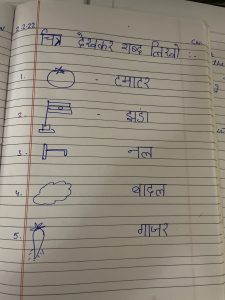 2-2-22
चित्र देखकर शब्द लिखो :-
1. - टमाटर
2. - झंडा
3. - नल
4. बादल
5. गाजर